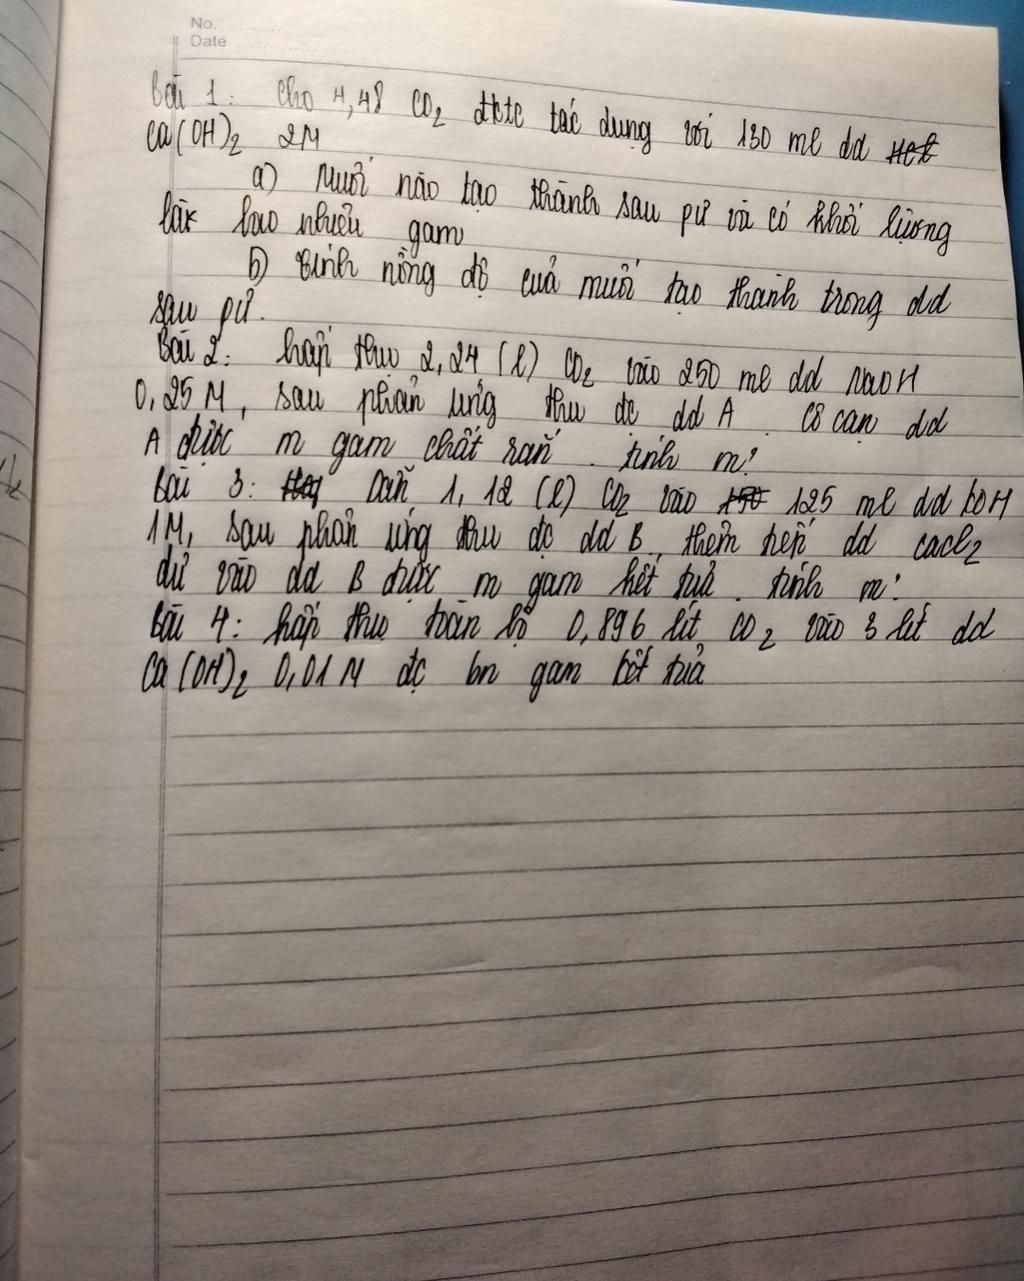 No.
Date
Bài 1: Cho 4,48 CO2 đktc tác dụng với 130 ml dd
Ca(OH)2 2M
a) Muối nào tạo thành sau pư và có khối lượng
là bao nhiêu gam
b) tính nồng độ của muối tạo thành trong dd
sau pứ.
Bài 2: hấp thụ 2,24 (l) CO2 vào 250 ml dd NaOH
0,25M, sau phản ứng thu đc dd A. Cô cạn dd
A được m gam chất rắn. tính m?
Bài 3: Dẫn 1,12 (l) CO2 vào 125 ml dd KOH
1M, sau phản ứng thu đc dd B, thêm tiếp dd cacl2
dư vào dd B được m gam kết tuả. tính m?
Bài 4: hấp thụ toàn bộ 0,896 lít CO2 vào 3 lít dd
Ca(OH)2 0,01M đc bn gam kết tuả